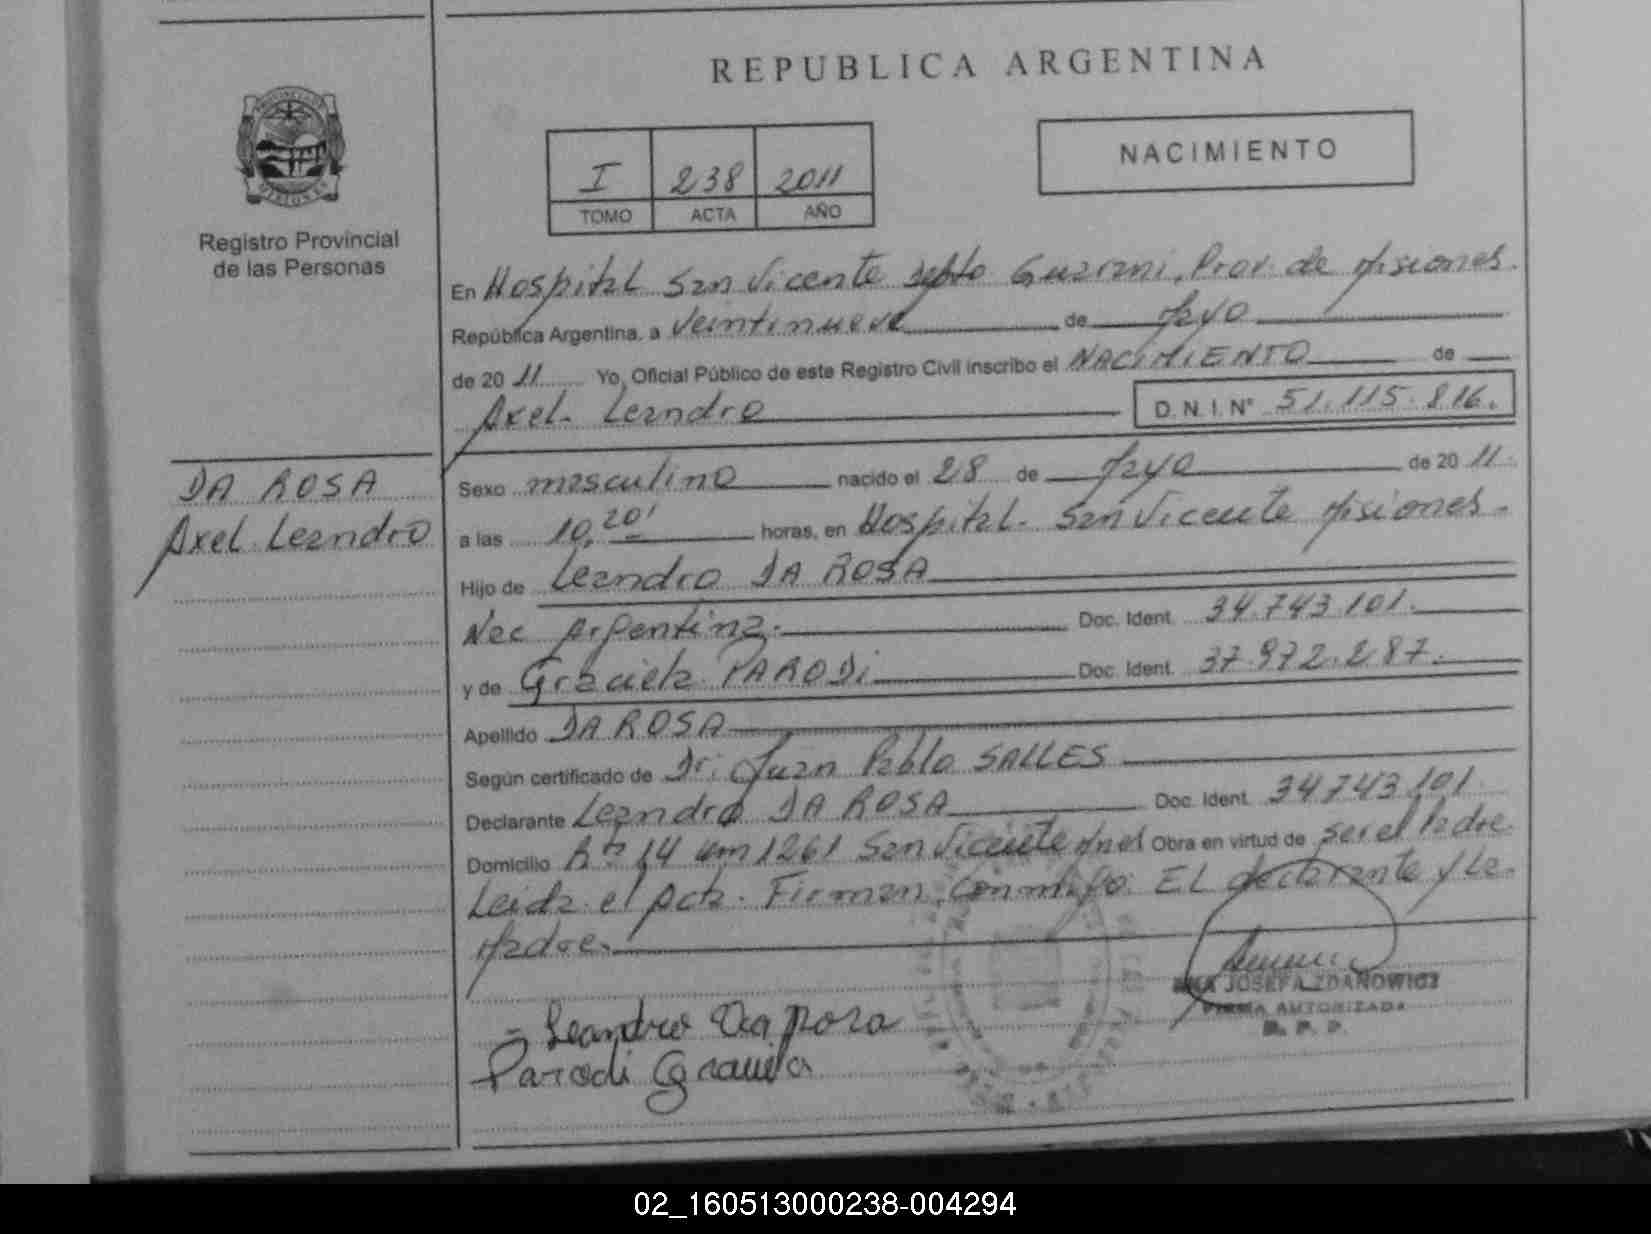 REPUBLICA ARGENTINA
PROVINCIA DE
MISIONES
Registro Provincial
de las Personas
I 238 2011
TOMO ACTA AÑO
NACIMIENTO
En Hospital San Vicente Depto Guarani, Prov. de Misiones.
República Argentina, a Veintinueve de Mayo
de 20 11 Yo, Oficial Público de este Registro Civil inscribo el NACIMIENTO de
Axel Leandro D. N. I. N° 51.115.816.
DA ROSA
Axel Leandro
Sexo masculino nacido el 28 de Mayo de 20 11.
a las 10,20' horas, en Hospital. San Vicente Misiones.
Hijo de Leandro DA ROSA
Nac Argentina. Doc. Ident. 34.743.101.
y de Graciela PARODI Doc. Ident. 37.972.287.
Apellido DA ROSA
Según certificado de Dr. Juan Pablo SALLES
Declarante Leandro DA ROSA Doc. Ident. 34743101.
Domicilio Rta 14 km 1261 San Vicente Mnes Obra en virtud de ser el Padre.
Leida el Acta. Firman Conmigo: EL declarante y La
Madre.
- Leandro Da Rosa
Parodi Graciela
ANA JOSEFA ZDANOWICZ
FIRMA AUTORIZADA
R. P. P.
02_160513000238-004294